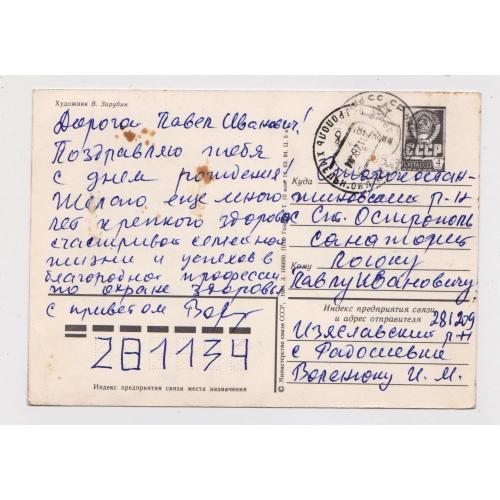 Художник В. Зарубин
Дорога Павел Иванович!
Поздравляю тебя
с днем рождения!
Желаю еще много
лет крепкого здоровья
счастливой семейной
жизни и успехов в
благородной профессии
по охране здоровья
с приветом
281134
Индекс предприятия связи места назначения
© Министерство связи СССР,
СССР
4
Куда Старокостан-
тиновский р-н
с Ст. Острополь
санаторий
Кому
Павлу Ивановичу
Индекс предприятия связи
и адрес отправителя
281209
Изяславский р-н
с Радошевка
И. М.